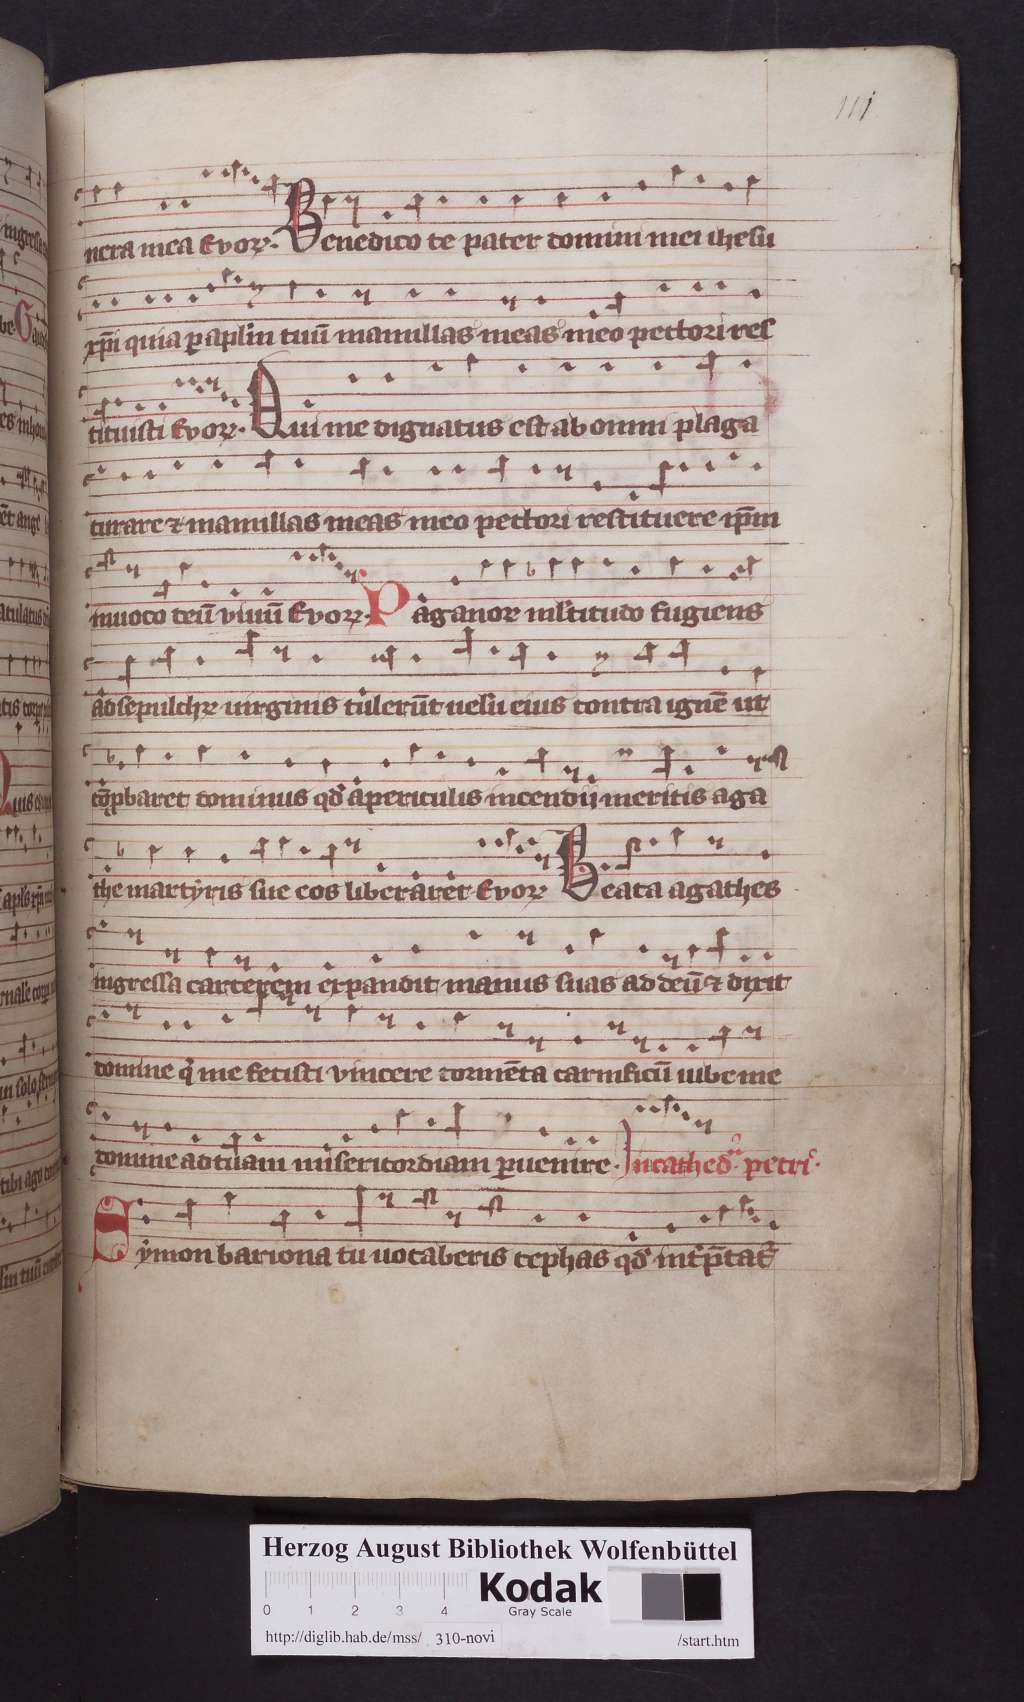 111
nera mea Evoꝝ. Benedico te pater domini mei ihesu
xp̄i quia ꝑ apl̄m tuū mamillas meas meo pectori res
tituisti Evoꝝ. Qui me dignatus est ab omni plaga
curare ⁊ mamillas meas meo pectori restituere ip̄m
inuoco deū viuū Evoꝝ. Paganoꝝ multitudo fugiens
ad sepulchꝝ uirginis tulerūt uelū eius contra ignē ut
cōꝓbaret dominus qd̓ a periculis incendij meritis aga
the martyris sue eos liberaret Evoꝝ Beata agathes
ingressa carcerem expandit manus suas ad deū ⁊ dixit
domine q̓ me fecisti vincere tormēta carnificū iube me
domine ad tuam misericordiam ꝑuenire. In cathed̓ petri.
Symon bariona tu uocaberis cephas qd̓ int̓p̄tat̓
Herzog August Bibliothek Wolfenbüttel
Kodak
Gray Scale
0 1 2 3 4
http://diglib.hab.de/mss/ 310-novi /start.htm